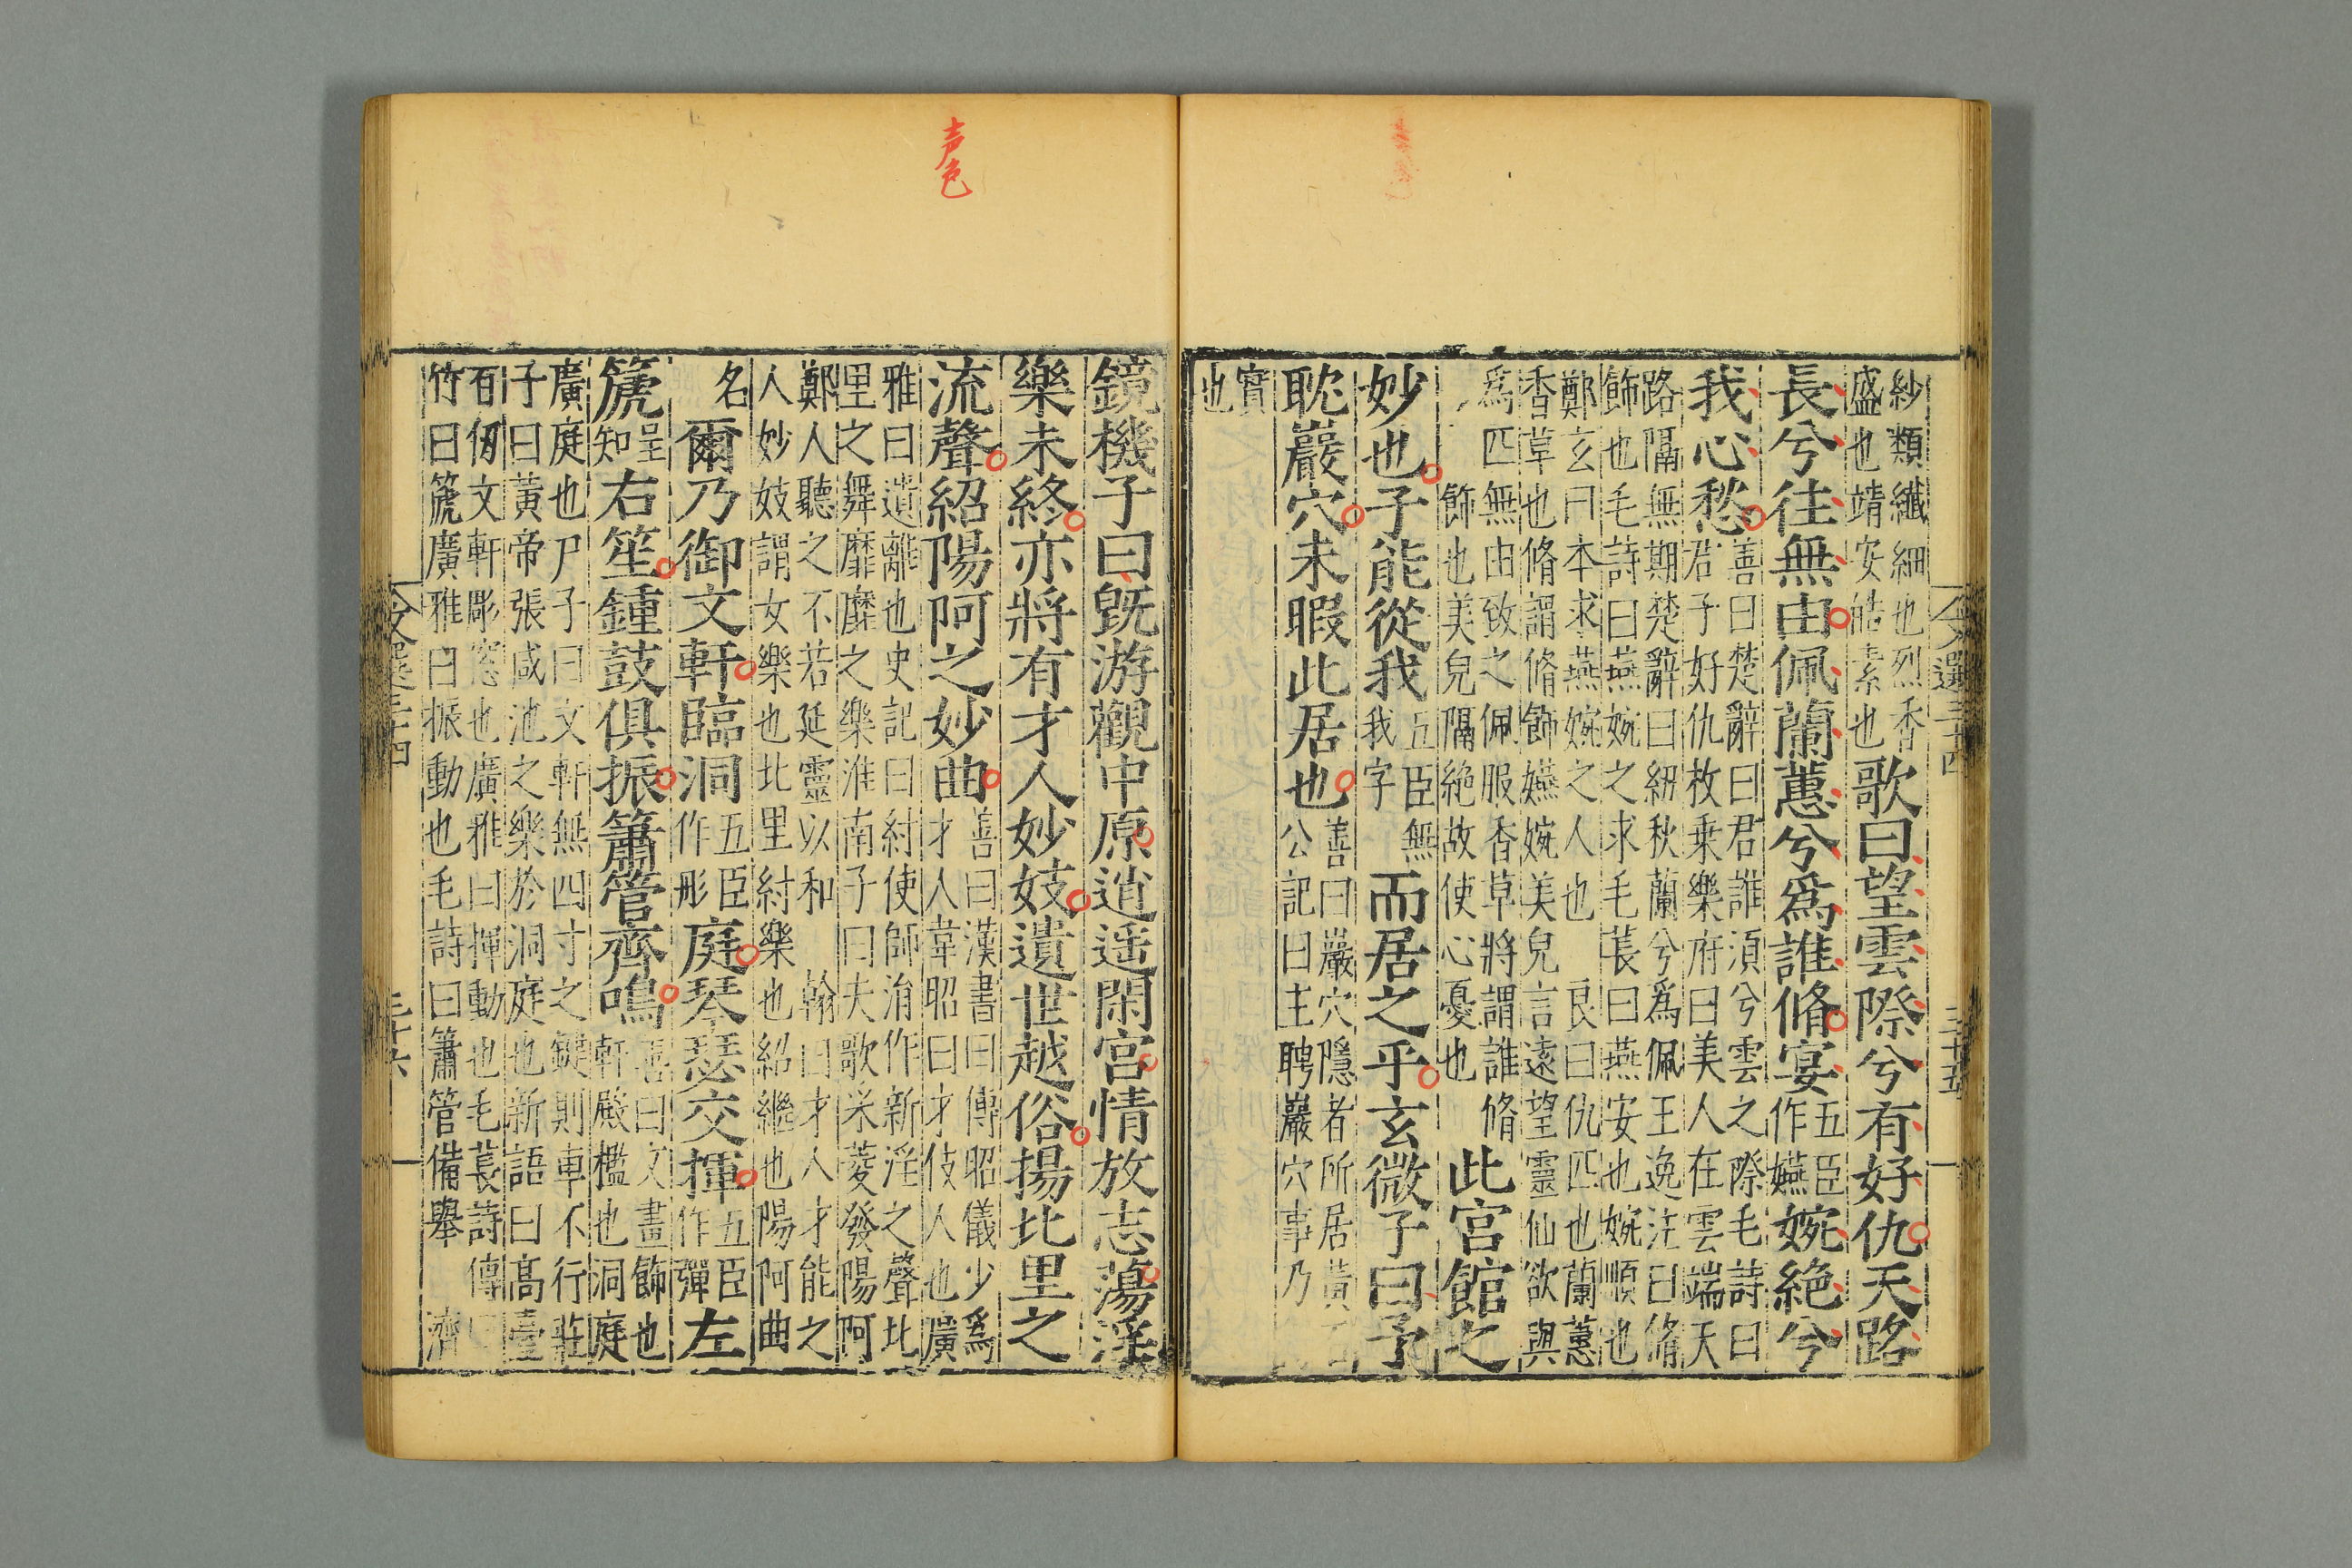 文選三十四
三十五
紗類纖細也烈香
盛也靖安皓素也
歌曰望雲際兮有好仇天路
長兮往無由佩蘭蕙兮爲誰脩宴
五臣
作嬿
婉絶兮
我心愁
善曰楚辭曰君誰須兮雲之際毛詩曰
君子好仇枚乗樂府曰美人在雲端天
路隔無期楚辭曰紉秋蘭兮爲佩王逸注曰脩
飾也毛詩曰燕婉之求毛萇曰燕安也婉順也
鄭玄曰本求燕婉之人也 良曰仇匹也蘭蕙
香草也脩謂脩飾嬿婉美皃言遠望靈仙欲與
爲匹無由致之佩服香草將謂誰脩
飾也美皃隔絶故使心憂也
此宮館之
妙也子能從我
五臣無
我字
而居之乎玄微子曰予
耽巖穴未暇此居也
善曰巖穴隱者所居黃石
公記曰主聘巖穴事乃
實
也
声色
鏡機子曰旣游觀中原逍遥閑宮情放志蕩淫
樂未終亦將有才人妙妓遺世越俗揚北里之
流聲紹陽阿之妙曲
善曰漢書曰傅昭儀少爲
才人韋昭曰才伎人也廣
雅曰遺離也史記曰紂使師涓作新淫之聲北
里之舞靡靡之樂淮南子曰夫歌采菱發陽阿
鄭人聽之不若延靈以和 翰曰才人才能之
人妙妓謂女樂也北里紂樂也紹繼也陽阿曲
名
爾乃御文軒臨洞
五臣
作彤
庭琴瑟交揮
五臣
作彈
左
篪
呈
知
右笙鍾鼓俱振簫管齊鳴
善曰文畫飾也
軒殿檻也洞庭
廣庭也尸子曰文軒無四寸之鍵則車不行莊
子曰黃帝張咸池之樂於洞庭也新語曰高臺
百仞文軒彫窓也廣雅曰揮動也毛萇詩傳曰
竹曰篪廣雅曰振動也毛詩曰簫管備舉 濟
文選三十四
三十六